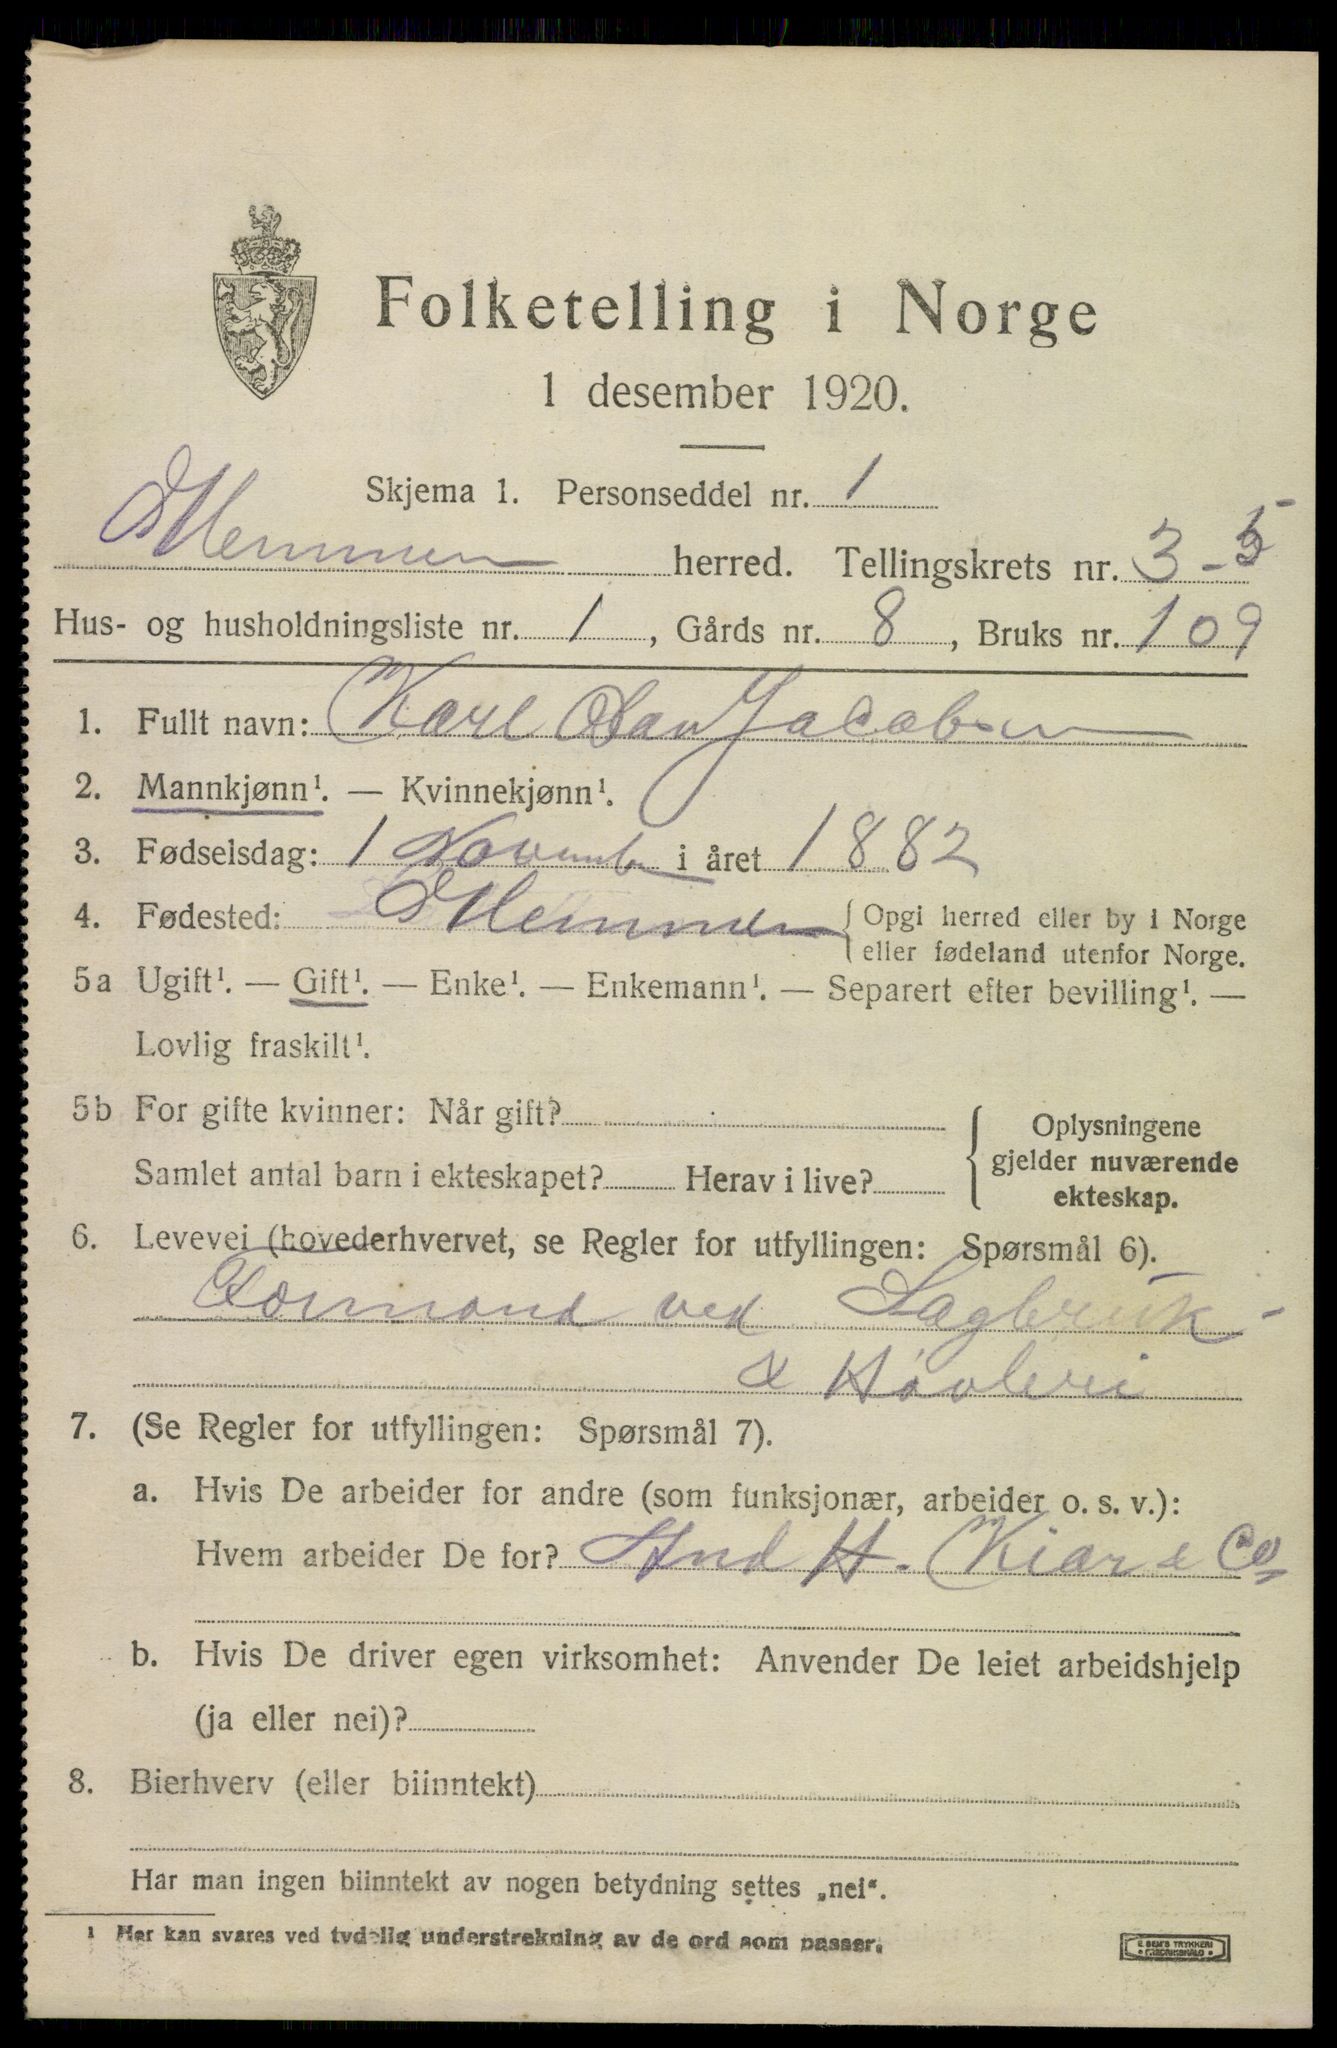 Folketelling i Norge
1 desember 1920.
Skjema 1. Personseddel nr. 1
Glemmen herred. Tellingskrets nr. 3 - 5
Hus- og husholdningsliste nr. 1, Gårds nr. 8, Bruks nr. 109
1. Fullt navn: Karl Jacobsen
2. Mannkjønn¹. — Kvinnekjønn¹.
3. Fødselsdag: 1 November i året 1882
4. Fødested: Glemmen { Opgi herred eller by i Norge
eller fødeland utenfor Norge.
5a Ugift¹. — Gift¹. — Enke¹. — Enkemann¹. — Separert efter bevilling¹. —
Lovlig fraskilt¹.
5b For gifte kvinner: Når gift?
Samlet antal barn i ekteskapet? Herav i live?
{ Oplysningene
gjelder nuværende
ekteskap.
6. Levevei (hovederhvervet, se Regler for utfyllingen: Spørsmål 6).
Formand ved Sagbruk-
& Høvleri
7. (Se Regler for utfyllingen: Spørsmål 7).
a. Hvis De arbeider for andre (som funksjonær, arbeider o. s. v.):
Hvem arbeider De for? And H. Kiær & Co
b. Hvis De driver egen virksomhet: Anvender De leiet arbeidshjelp
(ja eller nei)?
8. Bierhverv (eller biinntekt)
Har man ingen biinntekt av nogen betydning settes „nei“.
¹ Her kan svares ved tydelig understrekning av de ord som passer.
E. SEM'S TRYKKERI
FREDRIKSHALD